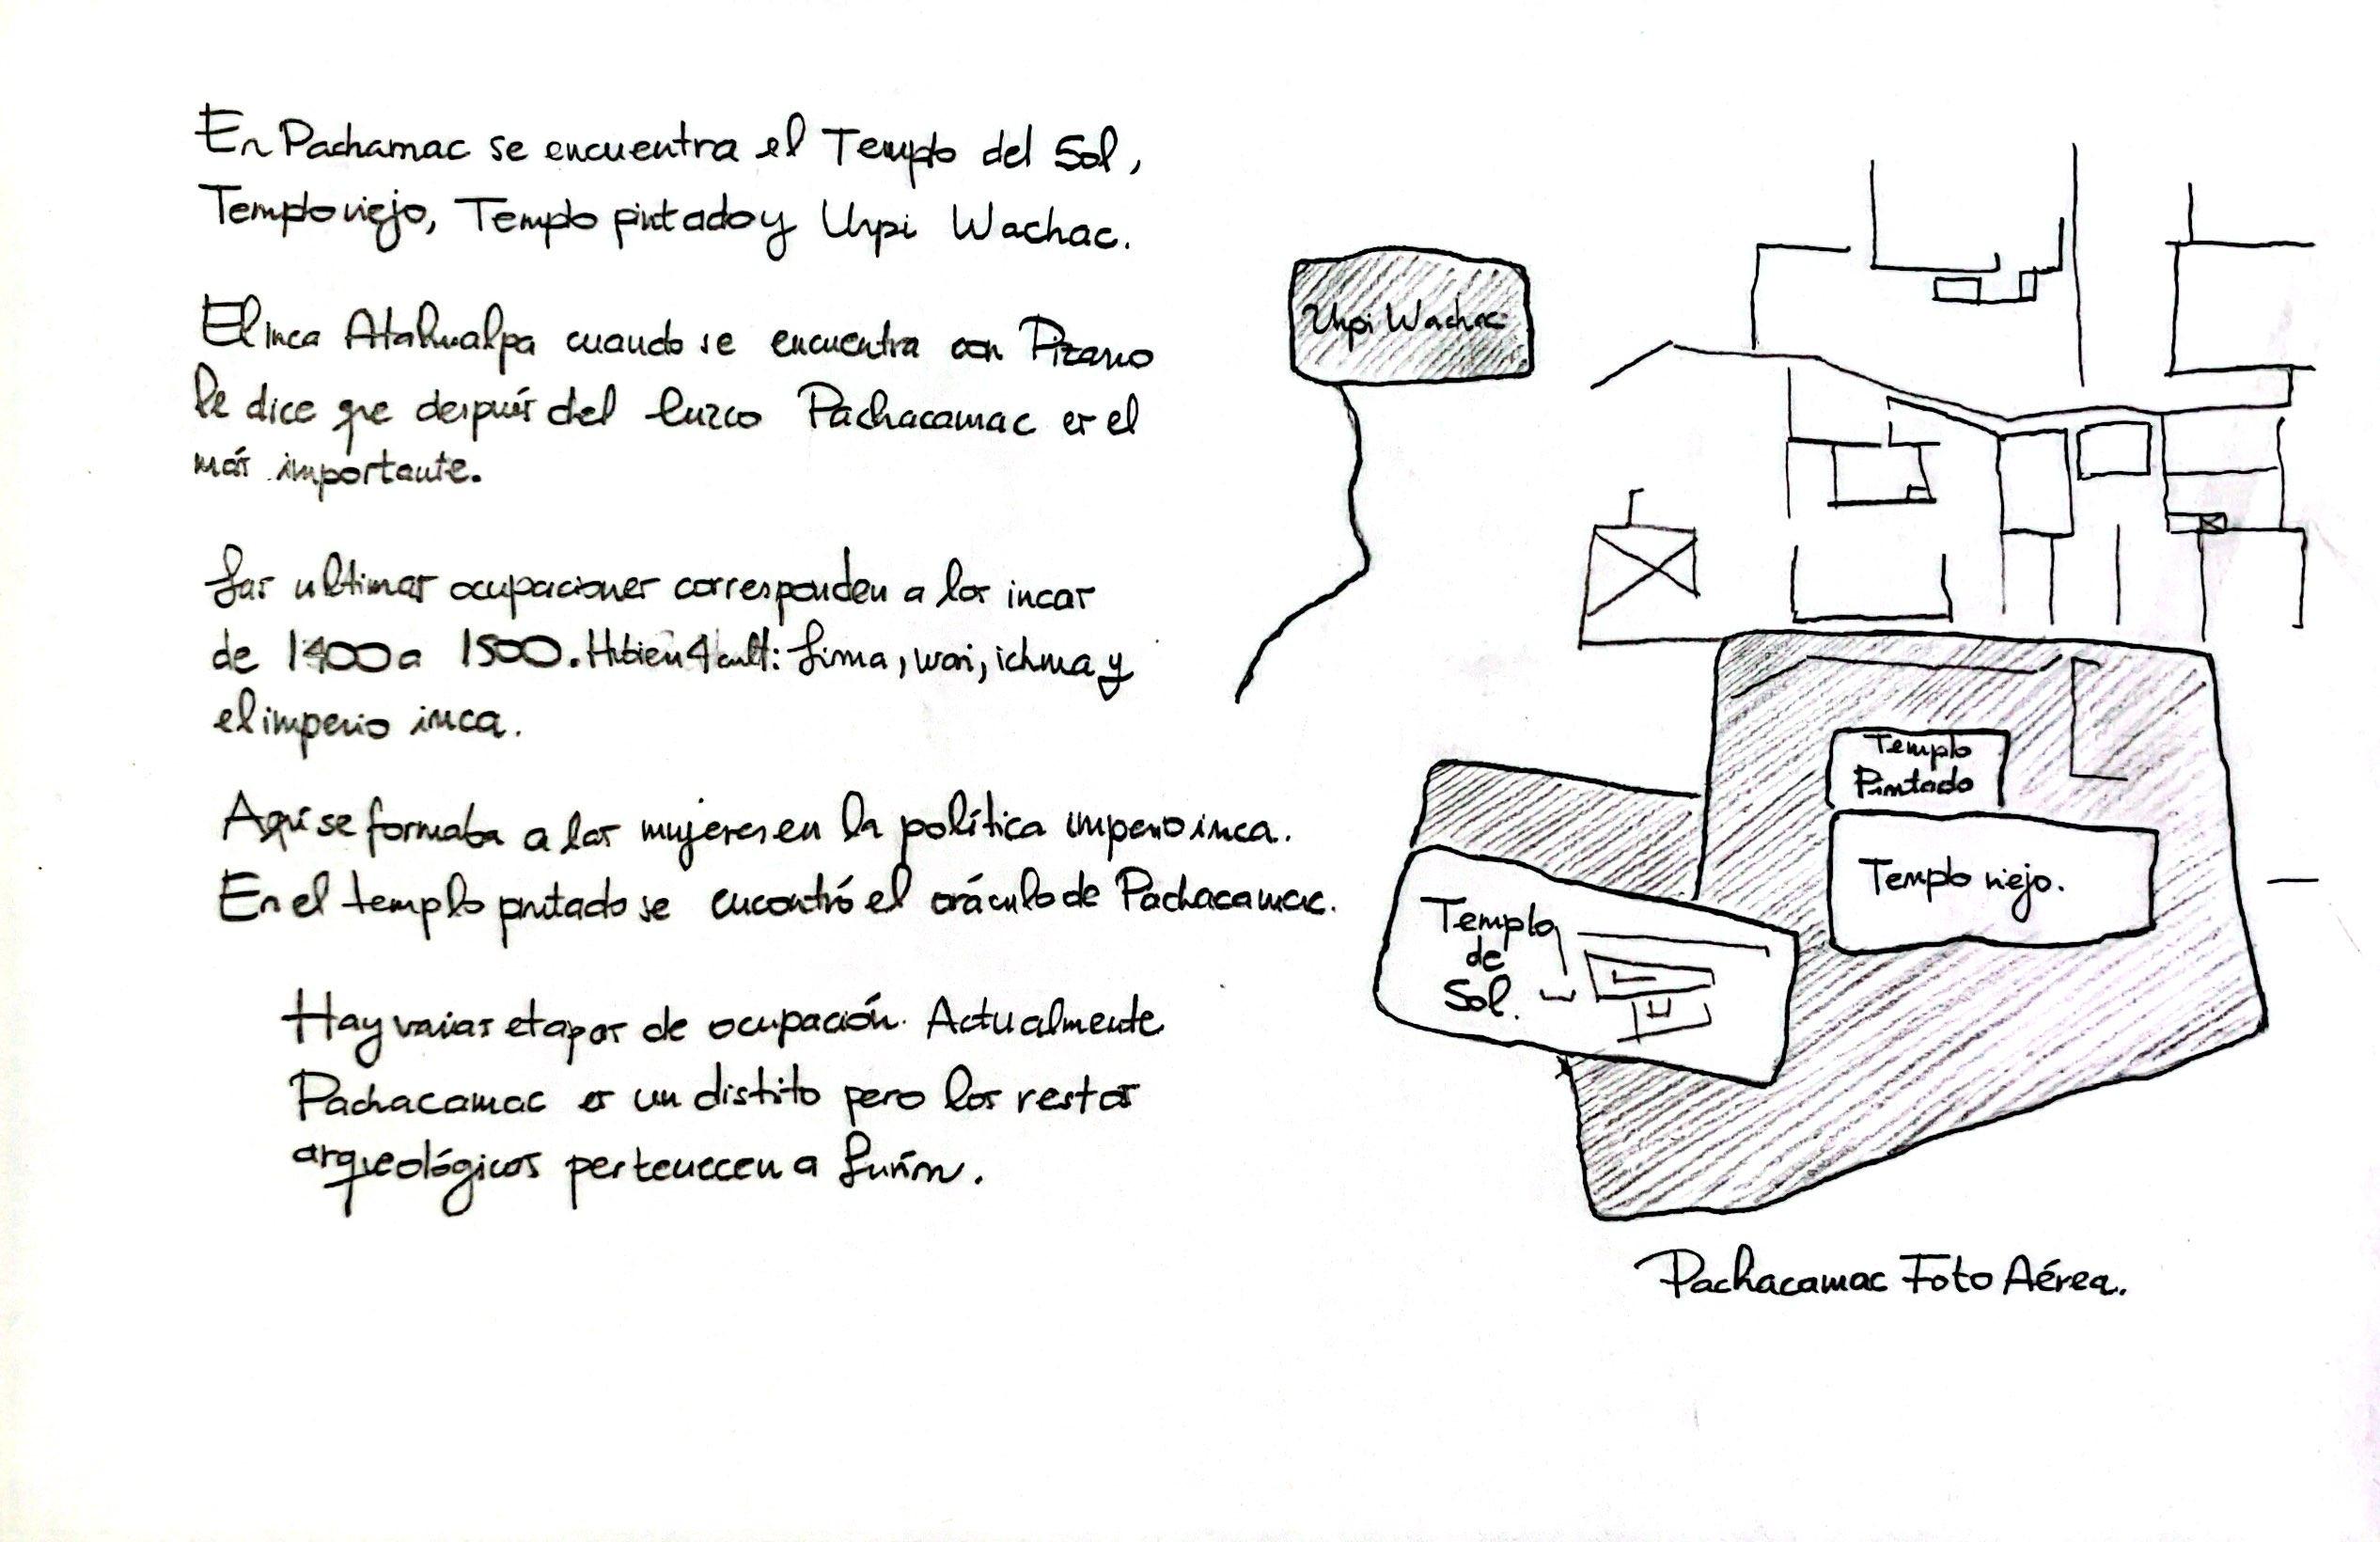 En Pachamac se encuentra el Templo del Sol,
Templo viejo, Templo pintado y Urpi Wachac.
El inca Atahualpa cuando se encuentra con Pizarro
le dice que después del Cuzco Pachacamac es el
más importante.
Las ultimas ocupaciones corresponden a los incas
de 1400 a 1500. 4 cult: Lima, wari, ichma y
el imperio inca.
Aquí se formaba a las mujeres en la política imperio inca.
En el templo pintado se encontró el oráculo de Pachacamac.
Hay varias etapas de ocupación. Actualmente
Pachacamac es un distito pero los restos
arqueológicos pertenecen a Lurín.
Urpi Wachac
Templo
Pintado
Templo viejo.
Templo
de
Sol.
Pachacamac Foto Aérea.